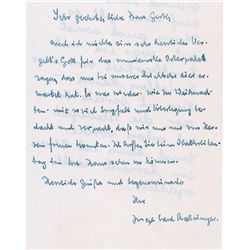 Sehr geehrte, liebe Frau Gerke,
auch ich möchte ein sehr herzliches Ver-
gelt's Gott für das wundervolle Osterpaket
sagen, das uns bei unserer Rückkehr hier er-
wartet hat. Es war wieder, wie zu Weihnach-
ten, mit so viel Sorgfalt und Überlegung be-
dacht und verpackt, daß wir uns nur von Her-
zen freuen konnten. Ich hoffe, Sie beim
bald im hiesigen Hause sehen zu können.
Herzliche Grüße und Segenswünsche
Ihr
Joseph Card. Ratzinger